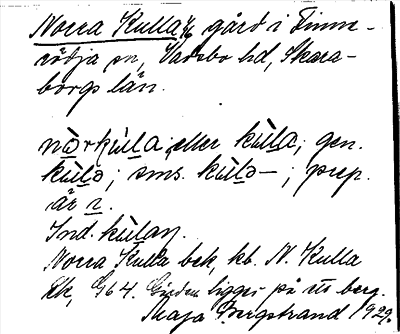 Norra Kulla, gård i Finne-
rödja sn, Vadsbo hd, Skara-
borgs län.
nòrkùla; eller kùla; gen.
kùlə; sms. kùlə–; prep.
är i.
Ind. kùlaŋ.
Norra Kulla bek, kb. N. Kulla
Ek, G64. Gården ligger på ett berg.
Maja Bergstrand 1929.